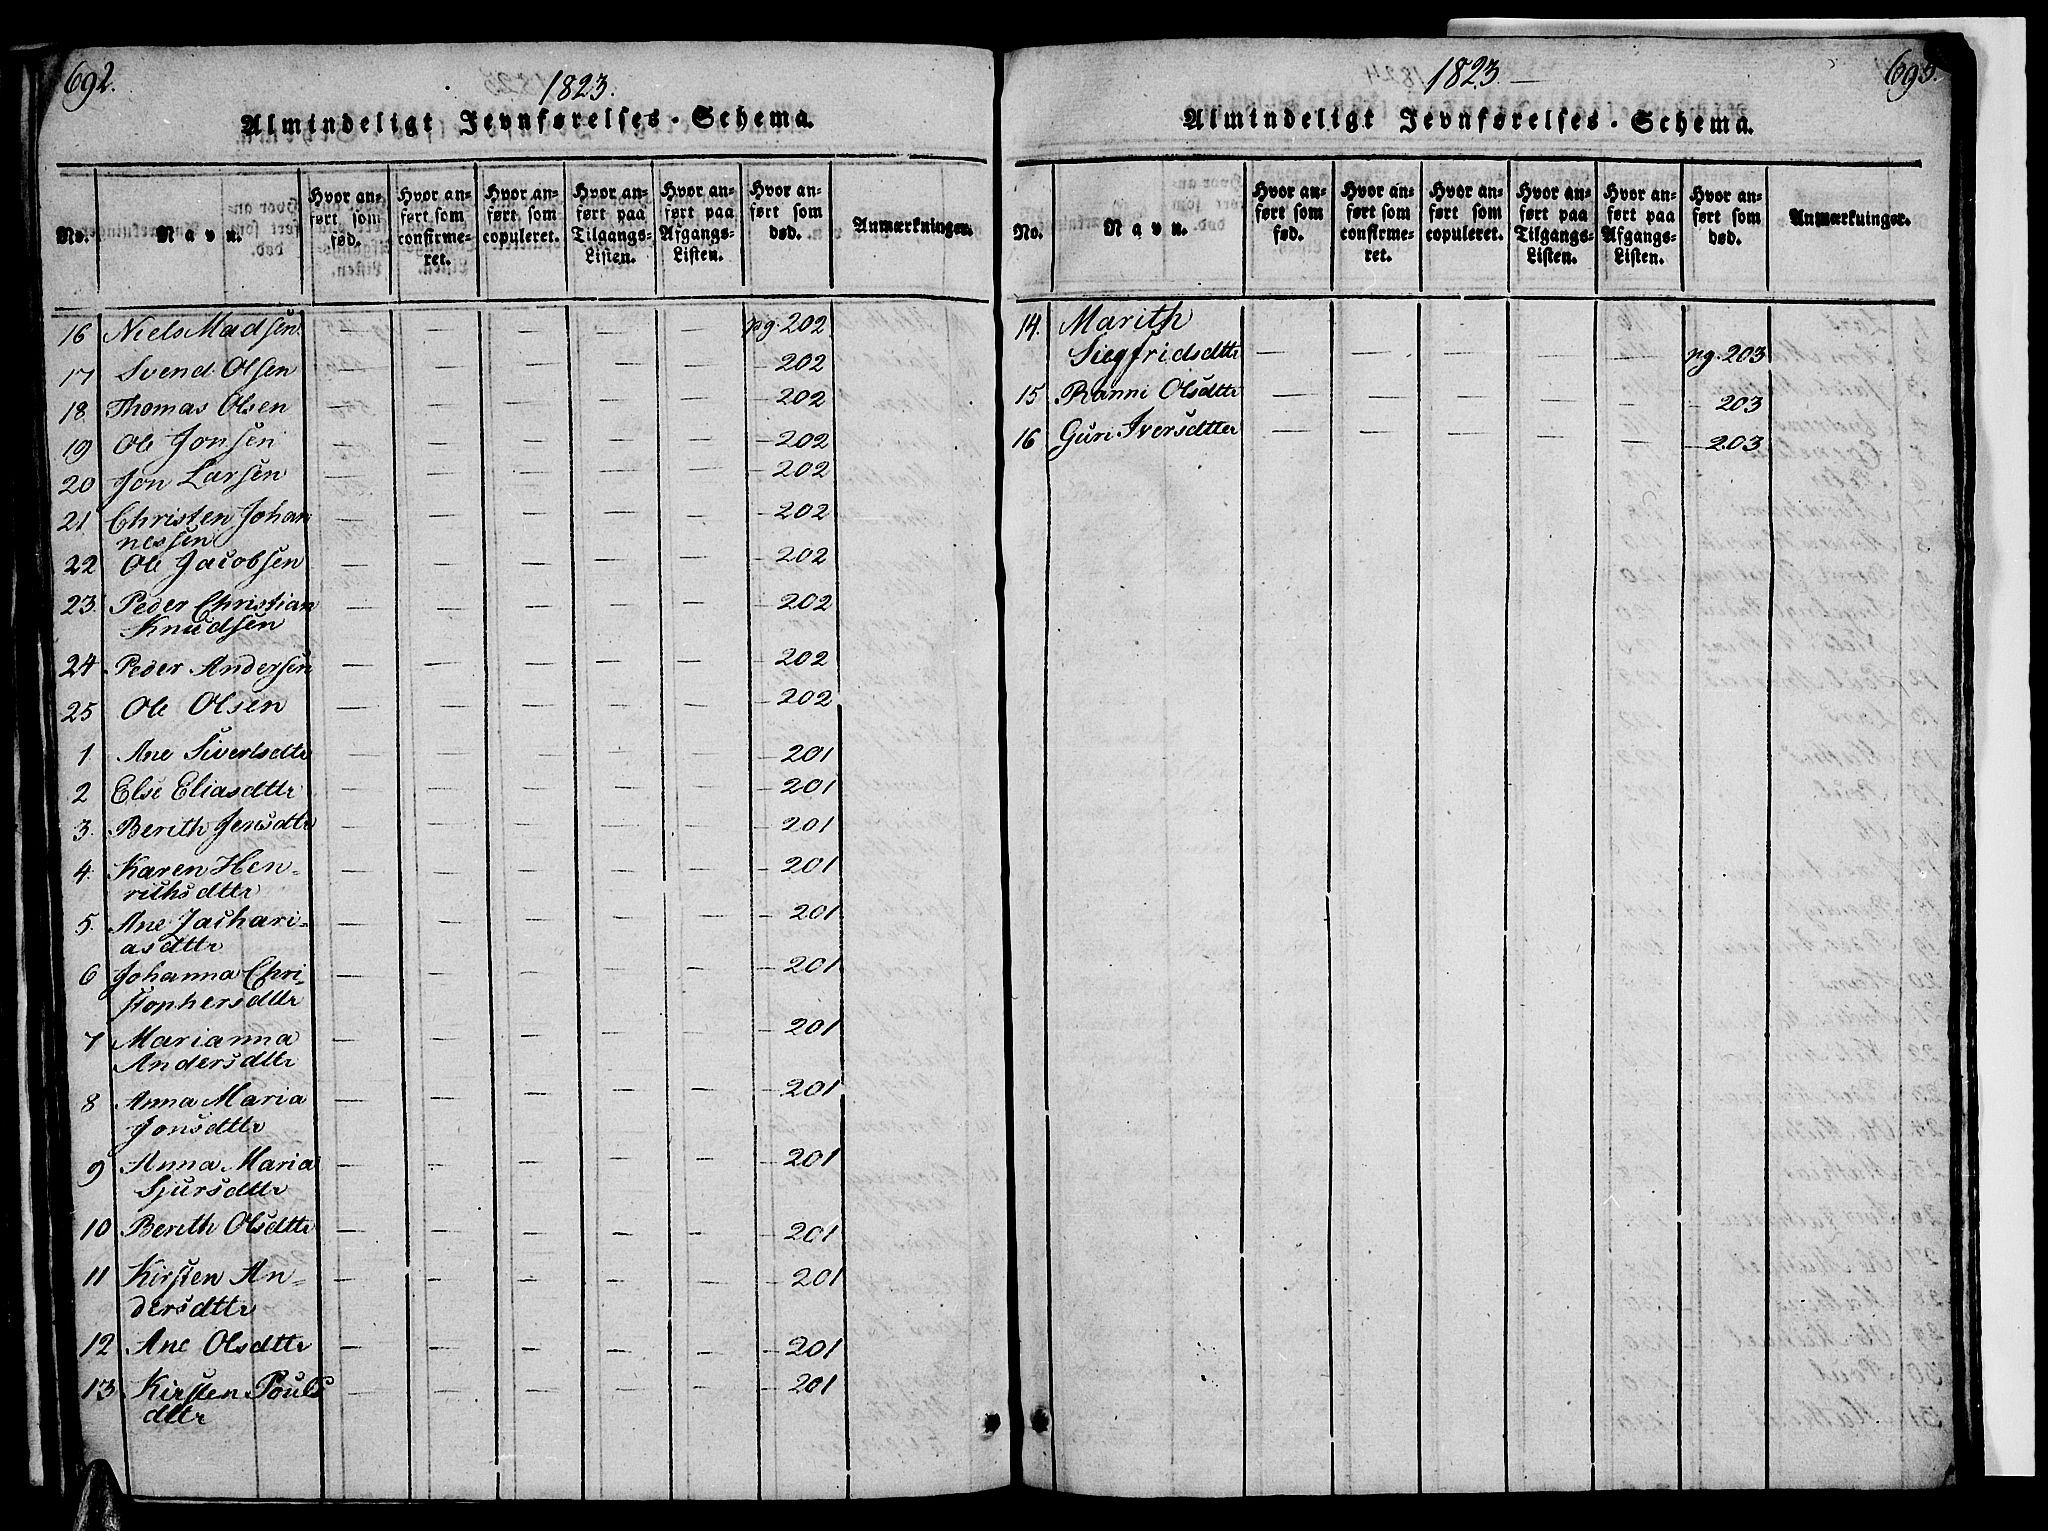 692.
1823.
Almindeligt Jevnførelses-Schema.
No.
Navn.
Hvor anført som fød.
Hvor anført som confirmeret.
Hvor anført som copuleret.
Hvor anført paa Tilgangs-Listen.
Hvor anført paa Afgangs-Listen.
Hvor anført som død.
Anmærkninger.
16 Niels Madsen — — — — — pg. 202
17 Svend Olsen — — — — — — 202
18 Thomas Olsen — — — — — — 202
19 Ole Jonsen — — — — — — 202
20 Jon Larsen — — — — — — 202
21 Christen Johan — — — — — — 202
nessen
22 Ole Jacobsen — — — — — — 202
23 Peder Christian — — — — — — 202
Knudsen
24 Peder Andersen — — — — — — 202
25 Ole Olsen — — — — — — 202
1 Ane Siverlsdtr — — — — — — 201
2 Else Eliasdttr — — — — — — 201
3. Berith Jensdtr — — — — — — 201
4. Karen Hen- — — — — — — 201
richsdttr
5. Ane Zachari- — — — — — — 201
asdttr
6 Johanna Chri- — — — — — — 201
stophersdttr
7 Marianna — — — — — — 201
Andersdttr
8 Anna Maria — — — — — — 201
Jonsdttr
9 Anna Maria — — — — — — 201
Sjursdttr
10 Berith Olsdttr — — — — — — 201
11 Kirsten An- — — — — — — 201
dersdttr
12 Ane Olsdttr — — — — — — 201
13 Kirsten Pouls — — — — — — 201
dttr
1823.—
693.
Almindeligt Jevnførelses-Schema.
No.
Navn.
Hvor anført som fød.
Hvor anført som confirmeret.
Hvor anført som copuleret.
Hvor anført paa Tilgangs-Listen.
Hvor anført paa Afgangs-Listen.
Hvor anført som død.
Anmærkninger.
14. Marith
Siegfridsdttr — — — — — pg. 203
15 Ranni Olsdttr — — — — — — 203
16 Guri Iversdtter — — — — — — 203